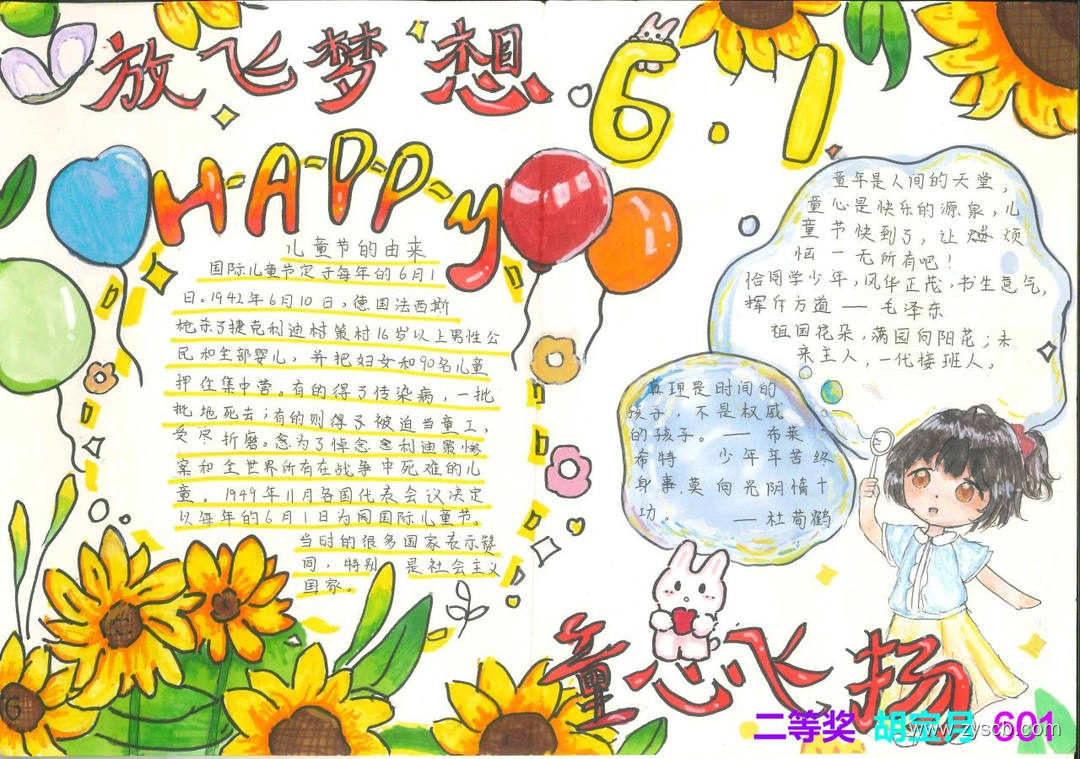 放飞梦想
6.1
HAPPy
儿童节的由来
国际儿童节定于每年的6月1
日。1942年6月10日，德国法西斯
枪杀了捷克利迪村策村16岁以上男性公
民和全部婴儿，并把妇女和90名儿童
押往集中营。有的得了传染病，一批
批地死去；有的则得了被迫当童工，
受尽折磨。为了悼念利迪策惨
案和全世界所有在战争中死难的儿
童，1949年11月各国代表会议决定
以每年的6月1日为国际儿童节。
当时的很多国家表示赞
同，特别是社会主义
国家。
童年是人间的天堂，
童心是快乐的源泉，儿
童节快到了，让烦
恼一无所有吧！
恰同学少年，风华正茂，书生意气，
挥斥方遒 — 毛泽东
祖国花朵，满园向阳花；未
来主人，一代接班人。
真理是时间的
孩子，不是权威
的孩子。— 布莱
希特 少年辛苦终
身事，莫向光阴惰寸
功。 — 杜荀鹤
童心飞扬
二等奖 胡宝月 601
www.zyscb.com